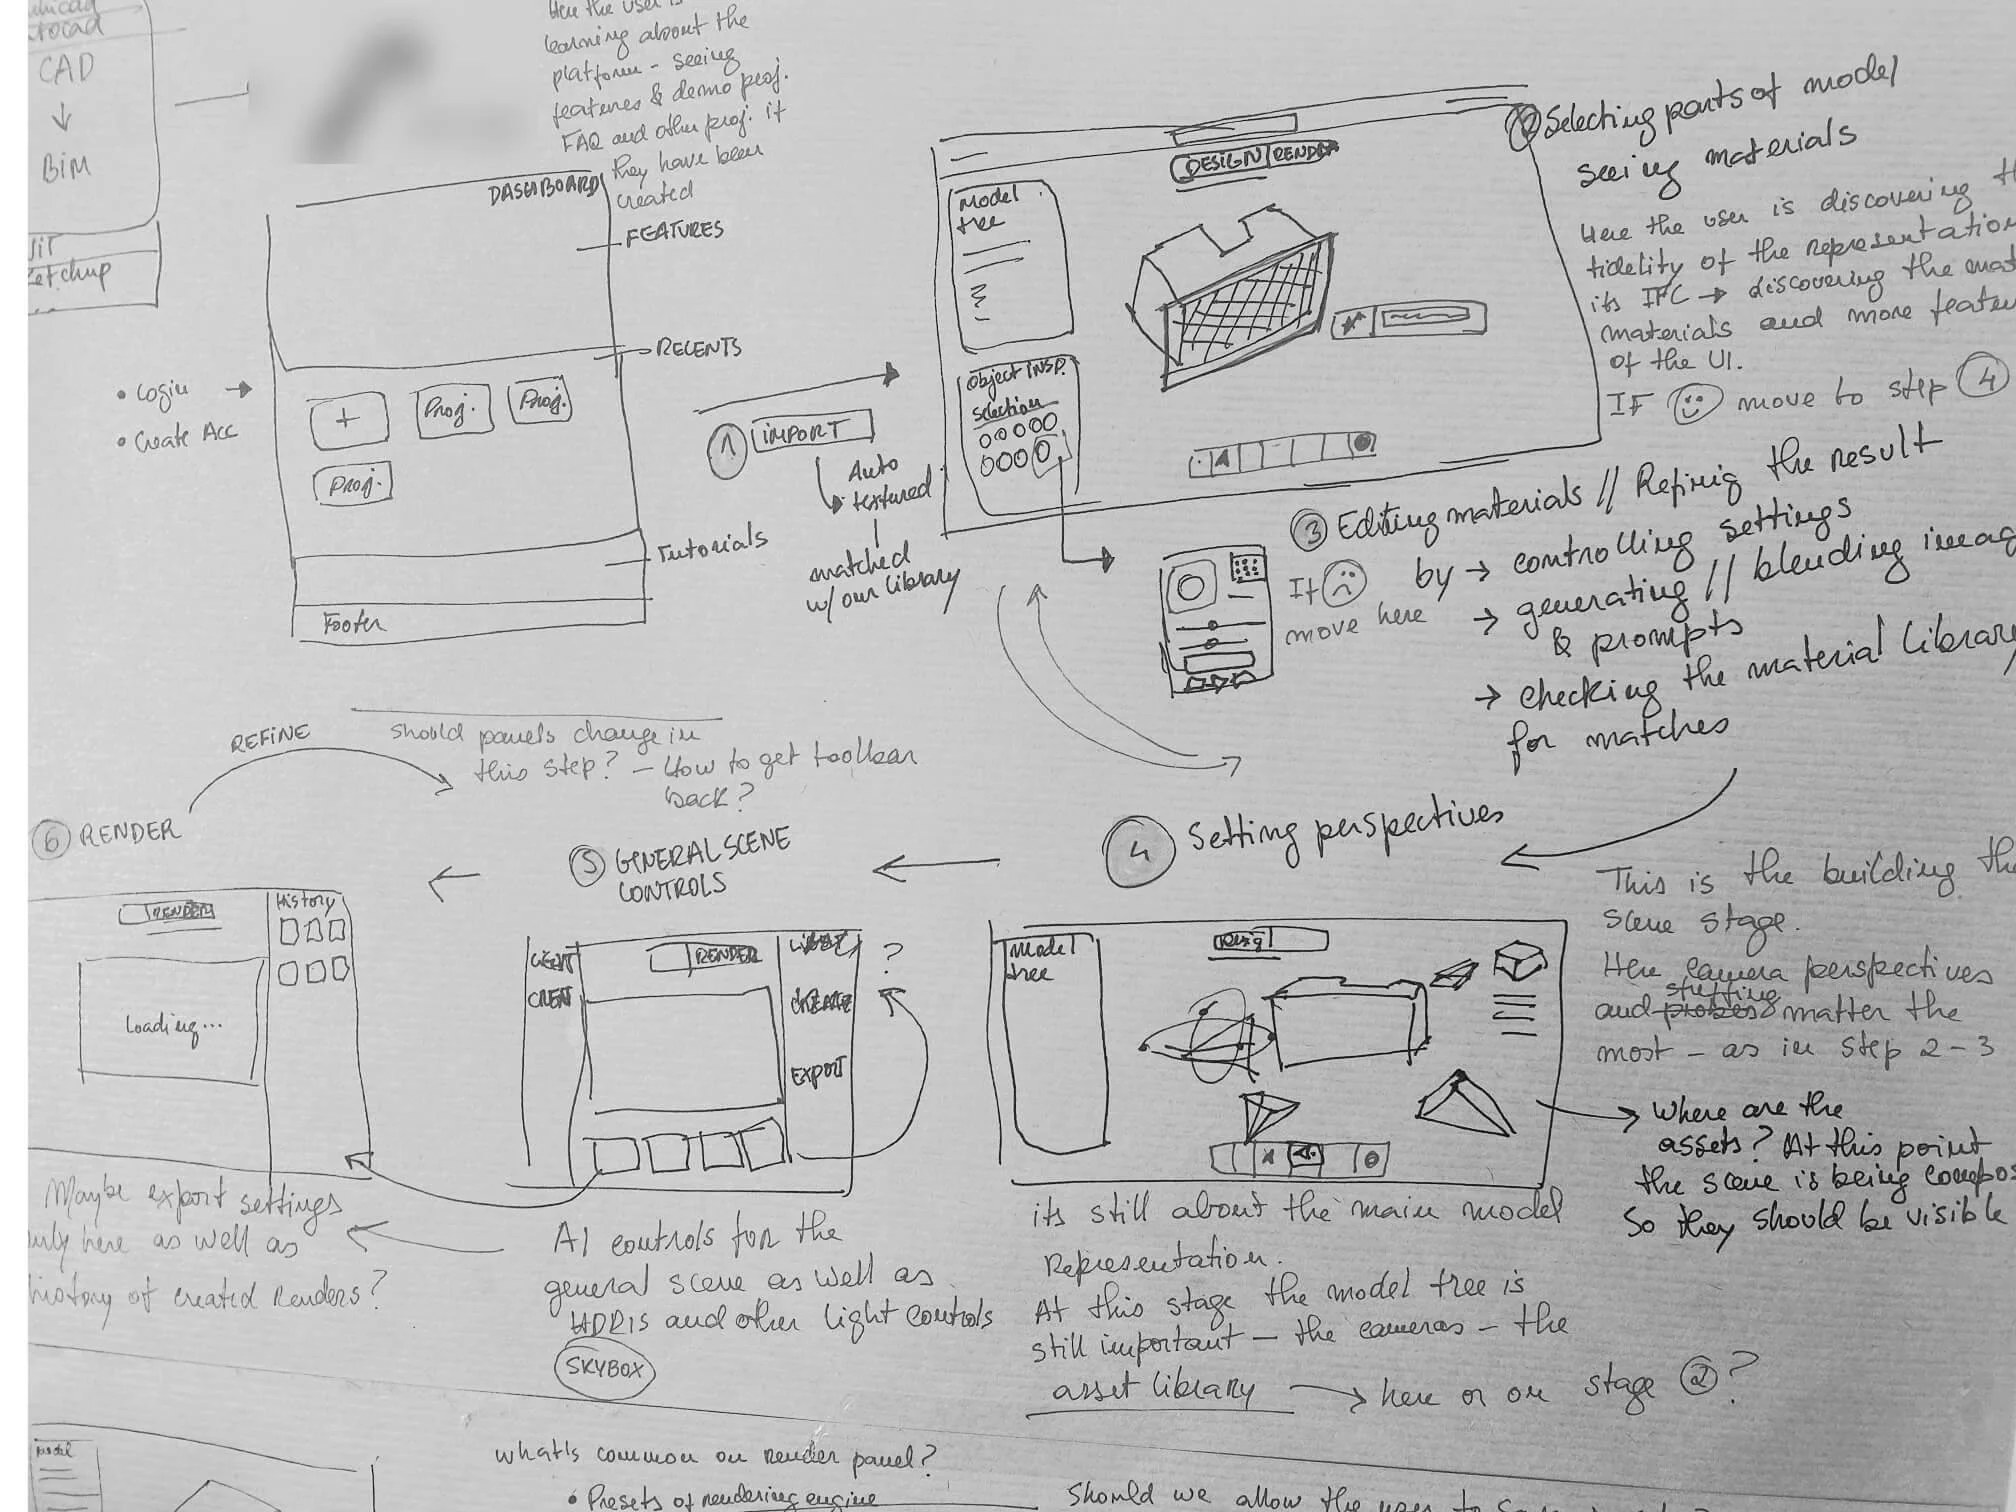 CAD
BiM
Here the user is
learning about the
platform - seeing
features & demo proj.
FAQ and other proj. if
they have been
created
DASHBOARD
FEATURES
RECENTS
• Login
• Create Acc
+
Proj.
Proj.
Proj.
Tutorials
Footer
1
IMPORT
Auto
textured
matched
w/ our library
DESIGN RENDER
Model
tree
Object INSP.
Selection
2 Selecting parts of model
seeing materials
Here the user is discovering
fidelity of the representation
its IFC → discovering the
materials and more
of the UI.
IF move to step 4
3 Editing materials // Refinig the result
If
move here
by → controlling settings
→ generating // blending
& prompts
→ checking the material library
for matches
REFINE
should panels change in
this step? - How to get toolbar
back?
6 RENDER
RENDER
History
Loading...
Maybe export settings
here as well as
history of created renders?
5 GENERAL SCENE
CONTROLS
RENDER
EXPORT
?
AI controls for the
general scene as well as
HDRIS and other light controls
SKYBOX
4 Setting perspectives
Model
tree
its still about the main model
Representation.
At this stage the model tree is
still important - the cameras - the
asset library → here or on stage 2?
This is the building the
scene stage.
Here camera perspectives
and probes matter the
most - as in step 2-3
→ Where are the
assets? At this point
the scene is being
So they should be visible
Model
what's common on render panel?
• Presets of rendering engine
Should we allow the user to